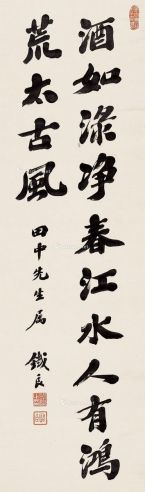 酒如渌净春江水人有鸿
荒太古風
田中先生属
鐵良